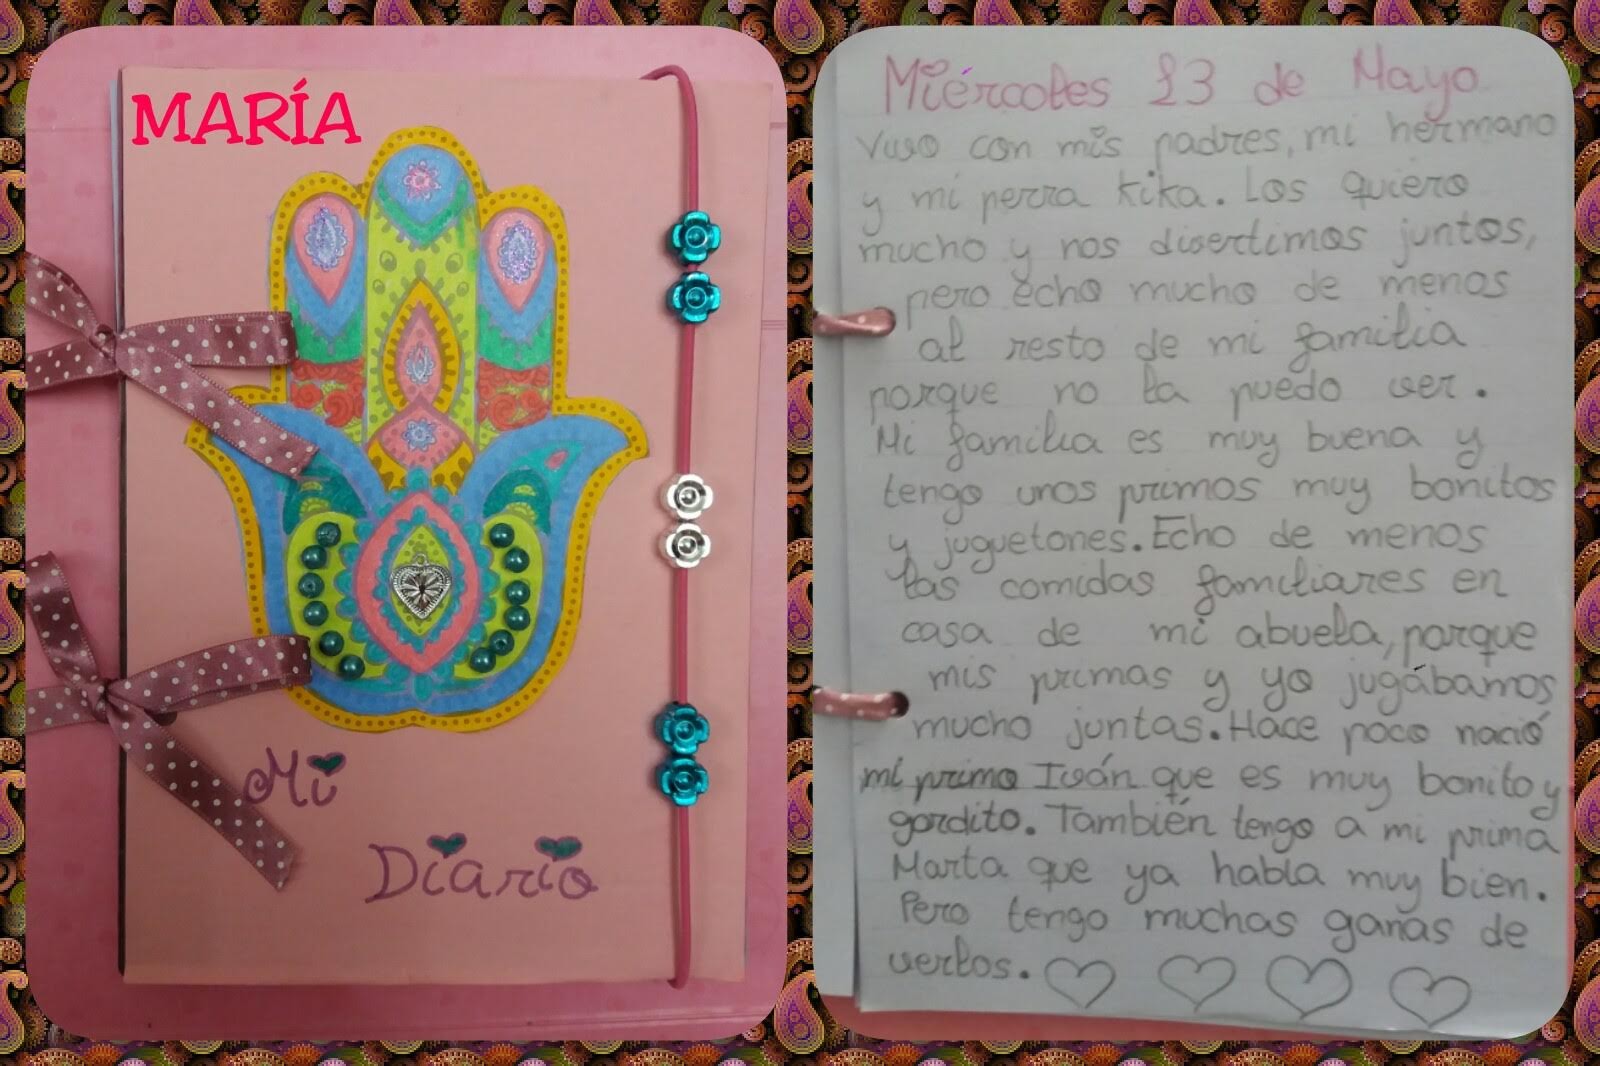 MARÍA
Mi
Diario
Miércoles 23 de Mayo
Vivo con mis padres, mi hermano
y mi perra Kika. Los quiero
mucho y nos divertimos juntos,
pero echo mucho de menos
al resto de mi familia
porque no la puedo ver.
Mi familia es muy buena y
tengo unos primos muy bonitos
y juguetones. Echo de menos
las comidas familiares en
casa de mi abuela, porque
mis primas y yo jugábamos
mucho juntas. Hace poco nació
mi primo Iván que es muy bonito y
gordito. También tengo a mi prima
Marta que ya habla muy bien.
Pero tengo muchas ganas de
verlos.